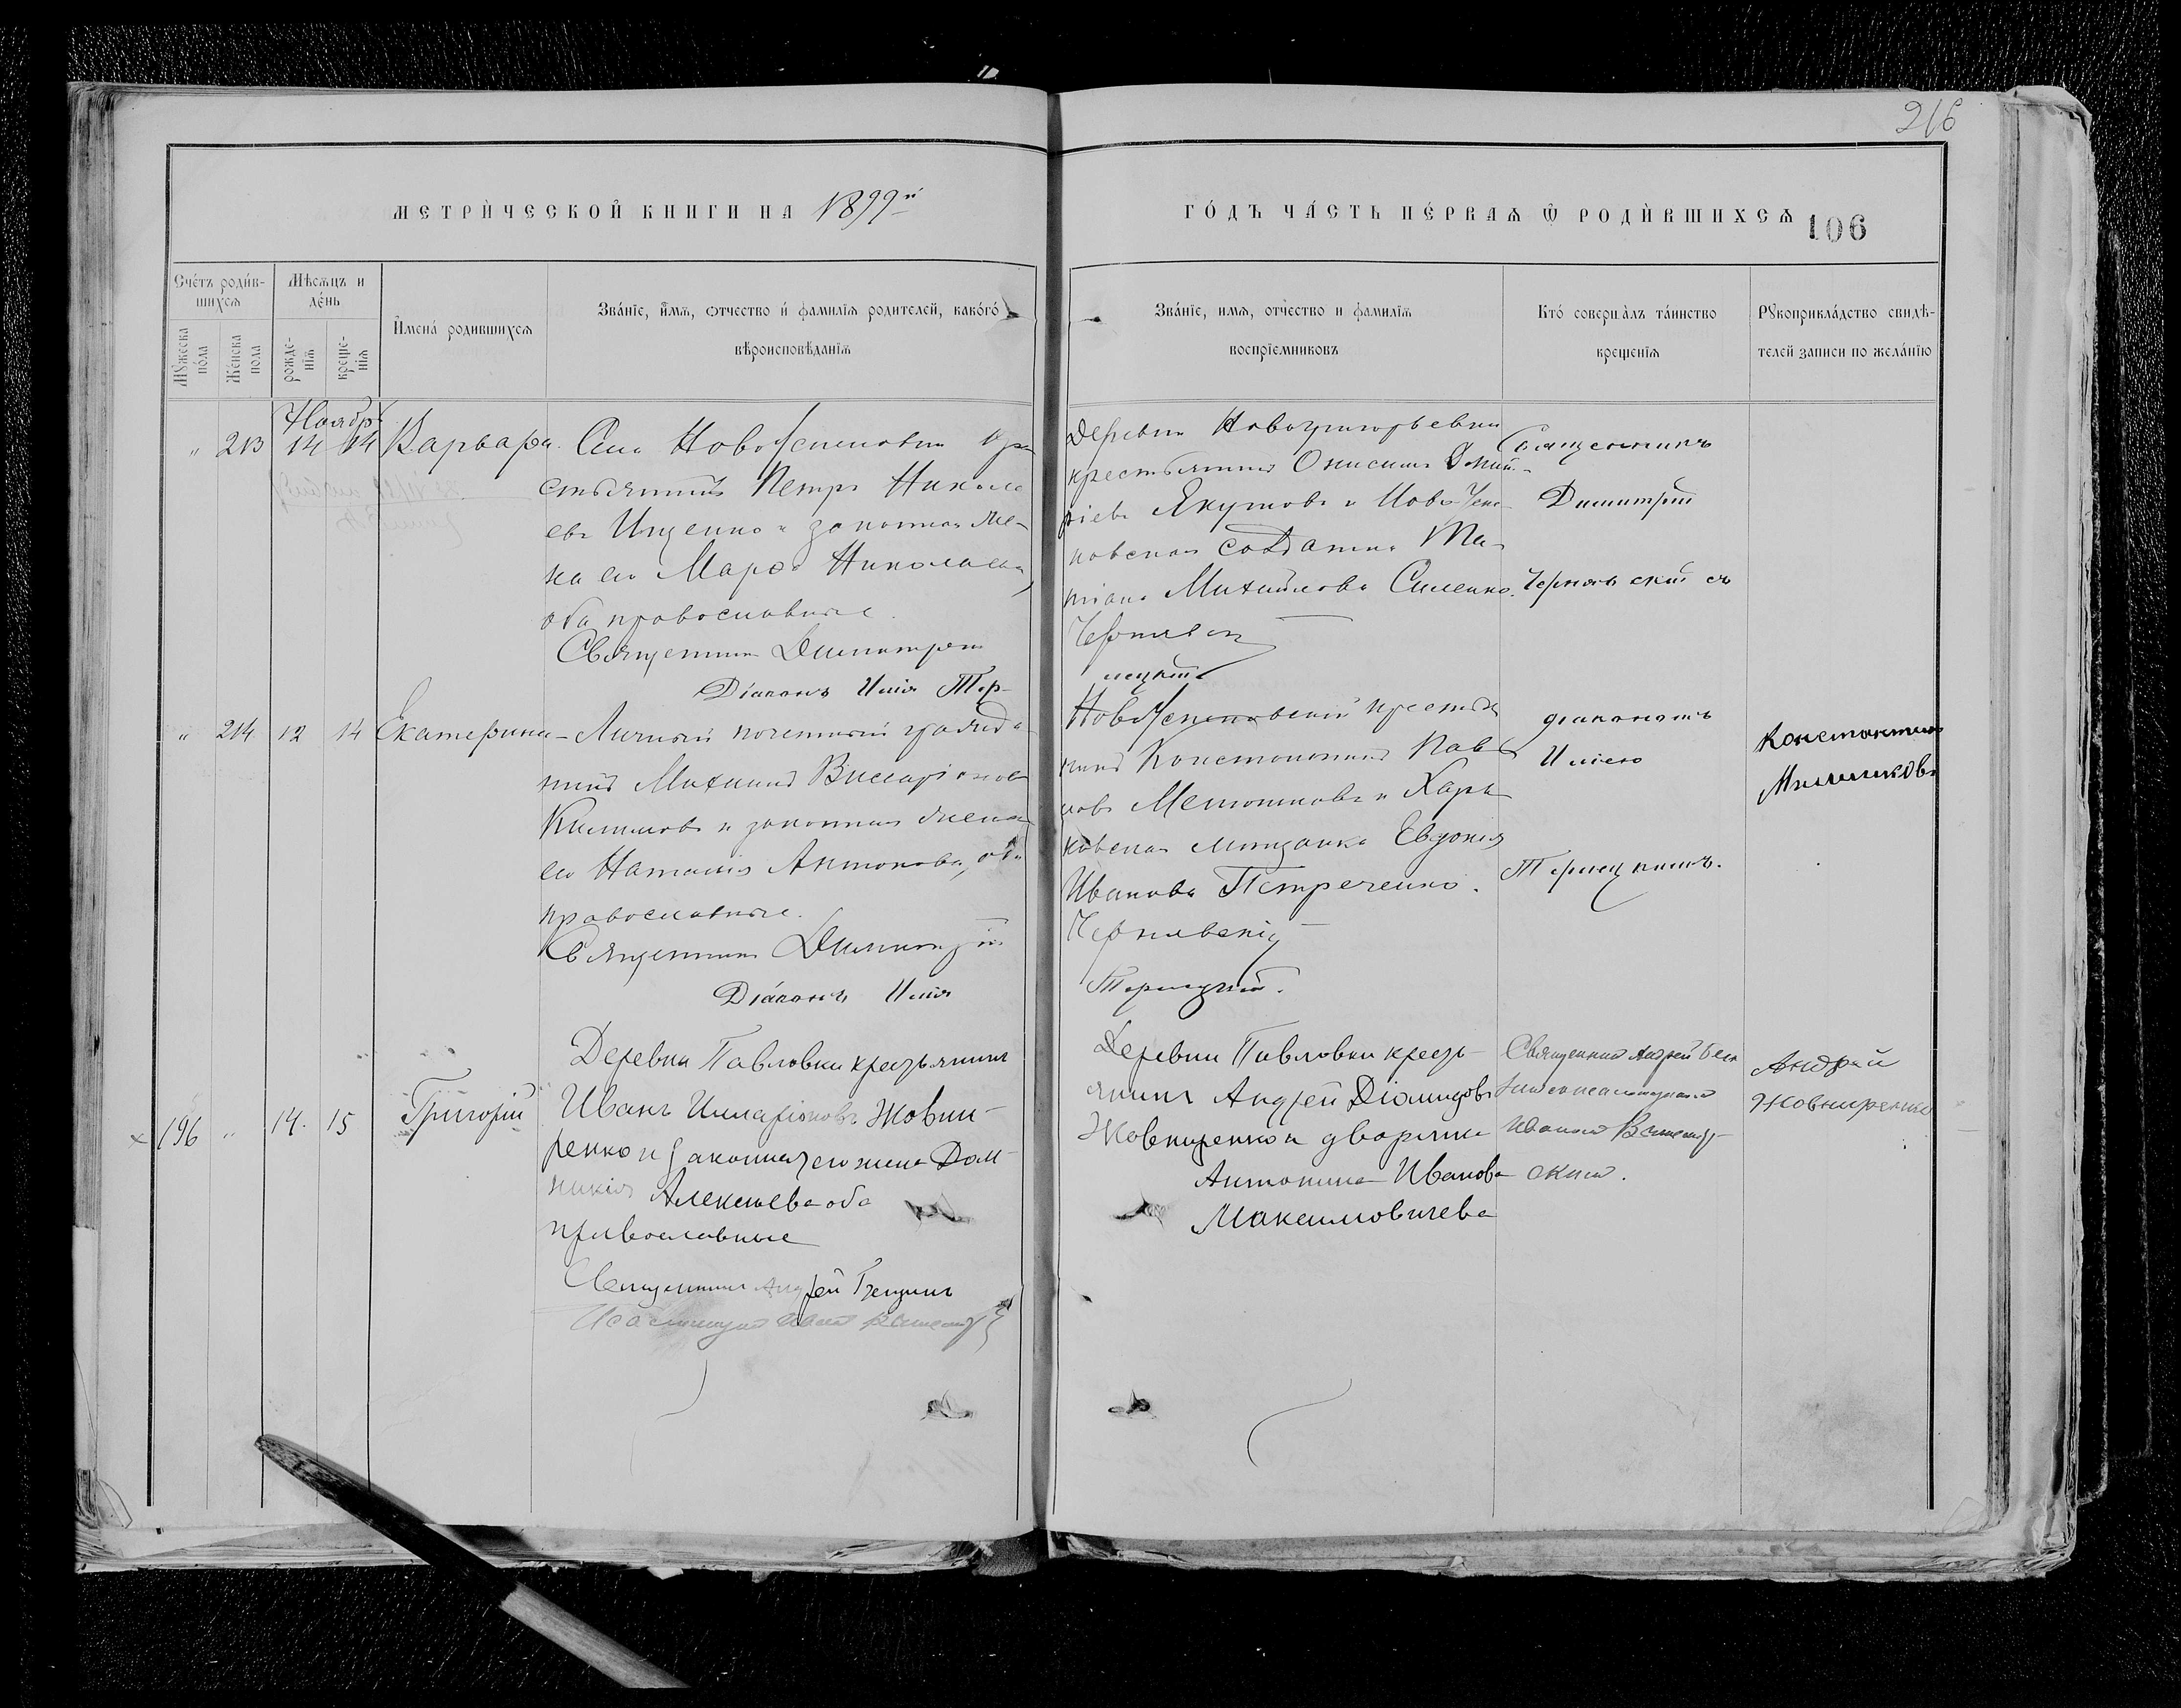 216
МЕТРИЧЕСКОЙ КНИГИ НА 1899й
ГОДЪ ЧАСТЬ ПЕРВАЯ Ѡ РОДИВШИХСЯ 106
Счетъ родив-
шихся
Мѣсяцъ и
день
Мужеска
пола
Женска
пола
рожде-
нія
креще-
нія
Имена родившихся
Званіе, имя, отчество и фамилія родителей, какого
вѣроисповѣданія
Званіе, имя, отчество и фамилія
воспріемниковъ
Кто совершалъ таинство
крещенія
Рукоприкладство свидѣ-
телей записи по желанію
Ноябрь
" 213 14 14 Варвара
Села НовоУспеновки кре
стьянинъ Петръ Никола
евъ Ищенко и законная же-
на его Марѳа Николаева,
оба православные.
Священникъ Димитрій
Діаконъ Илія Тер-
Деревни Новогригорьевки
крестьянинъ Онисимъ Димит-
ріевъ Якутовъ и НовоУспе-
новская солдатка Та-
тіана Михайлова Силенко.
Чернявск
лецкій
Священникъ
Димитрій
Чернявскій съ
" 214 12 14 Екатерина
Личный почетный гражда
нинъ Михаилъ Виссаріоновъ
и законная жена
его Наталія Антонова, оба
православные.
Священникъ Димитрій
Діаконъ Илія
НовоУспеновскій крестья
нинъ Константинъ Пав
ловъ и Харь
ковская мѣщанка Евдокія
Иванова Петреченко.
Чернявскій
Терлецкій.
діакономъ
Иліею
Терлецкимъ.
Константинъ
× 196 " 14. 15 Григорій
Деревни Павловки крестьянинъ
Иванъ Илларіоновъ Жовни-
ренко и законная его жена Дом-
никія Алексѣева оба
православные
Священникъ Андрей
Псаломщикъ Иванъ
Деревни Павловки кресть-
янинъ Андрей Діомидовъ
Жовниренко и дворянка
Антонина Иванова
Максимовичева
Священникъ Андрей
Иваномъ
скимъ.
Андрей
Жовниренко